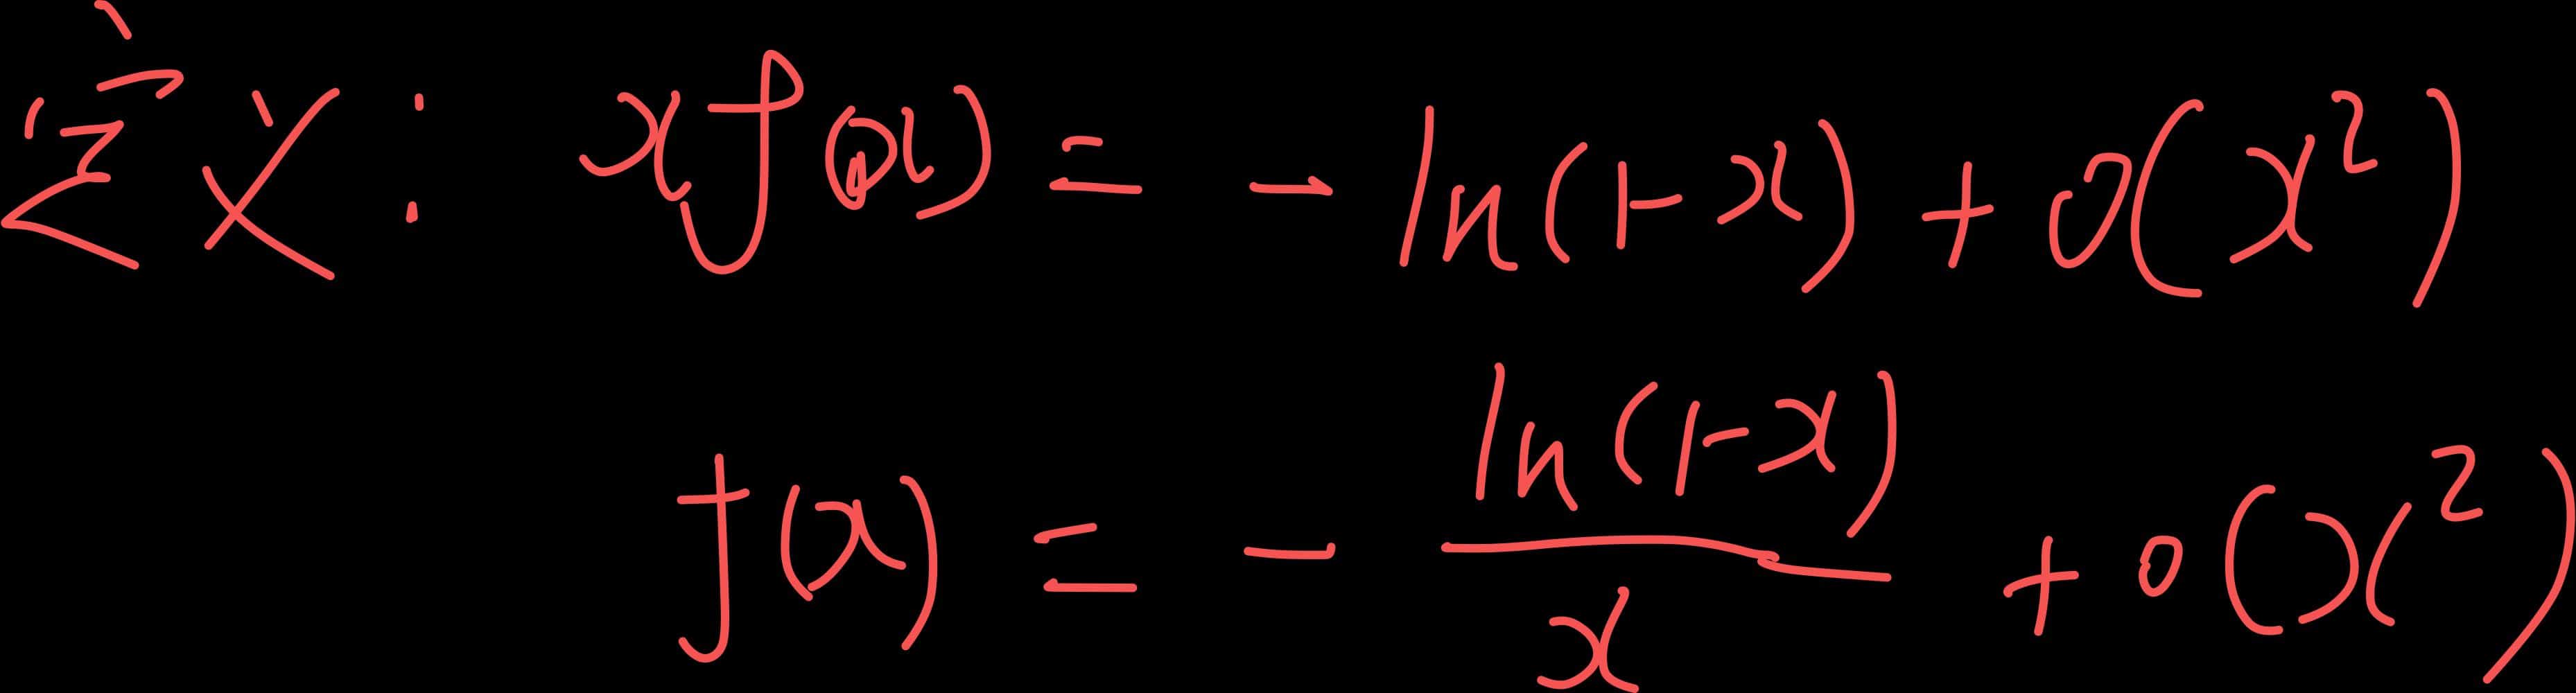 定义: xf(x) = - ln(1-x) + o(x²)
f(x) = - ln(1-x)/x + o(x²)